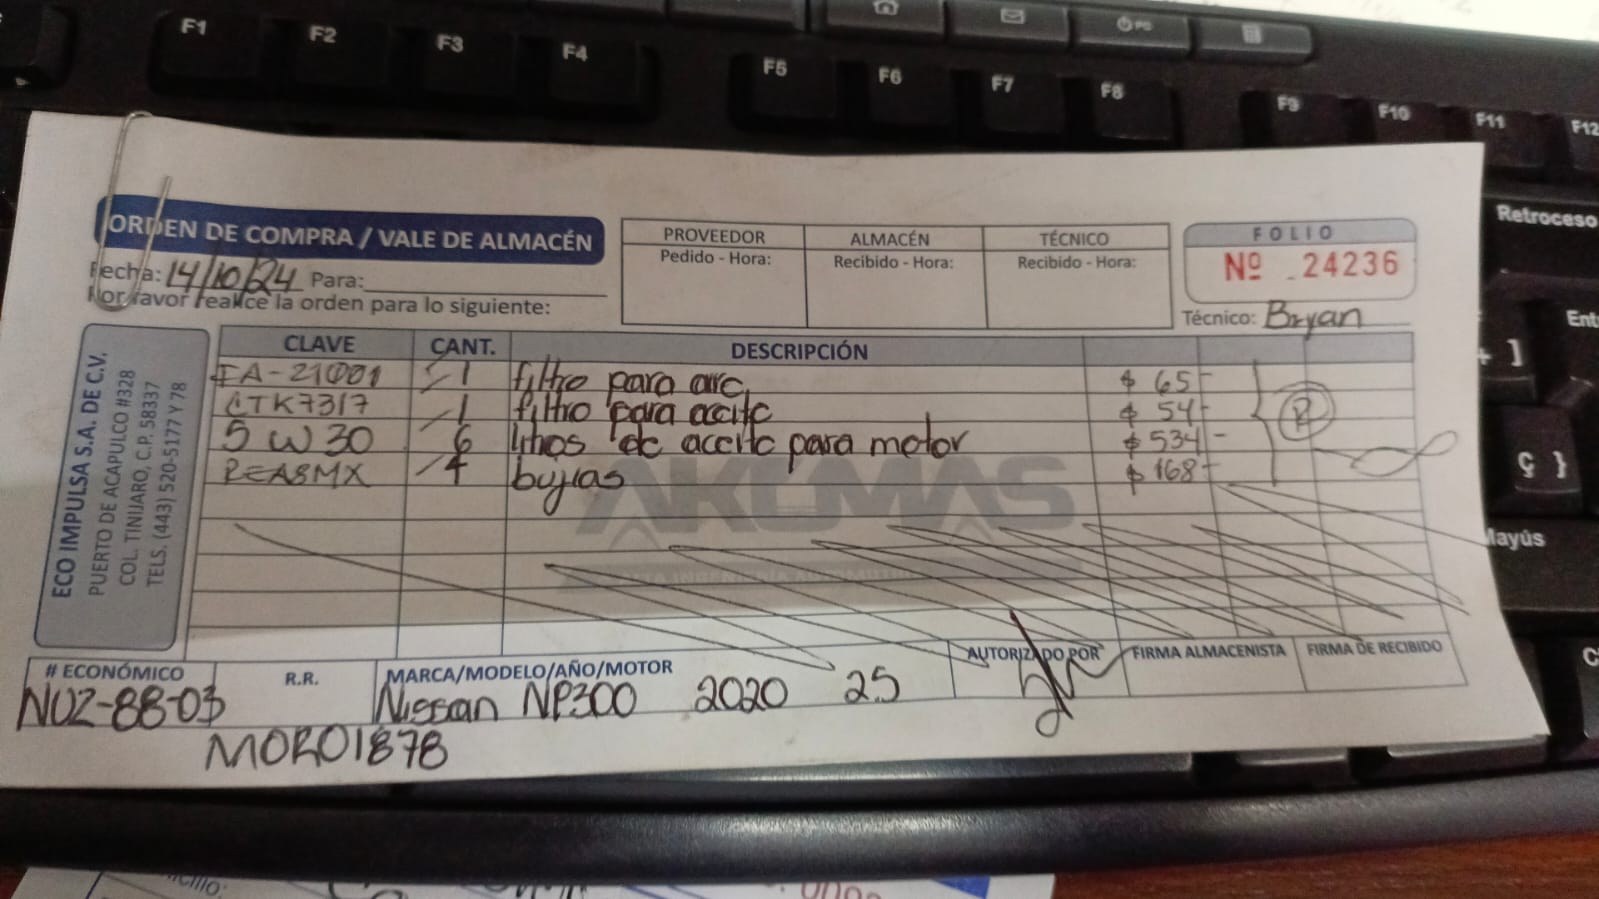 F1 F2 F3 F4 F5 F6 F7 F8 F9 F10 F11 F12
Retroceso
ORDEN DE COMPRA / VALE DE ALMACÉN
Fecha: 14/10/24 Para:
Por favor realice la orden para lo siguiente:
PROVEEDOR ALMACÉN TÉCNICO
Pedido - Hora: Recibido - Hora: Recibido - Hora:
FOLIO
Nº 24236
Técnico: Bryan
ECO IMPULSA S.A. DE C.V.
PUERTO DE ACAPULCO #328
COL. TINIJARO, C.P. 58337
TELS. (443) 520-5177 Y 78
CLAVE CANT. DESCRIPCIÓN
FA-21001 1 filtro para aire $ 65-
CTK7317 1 filtro para aceite $ 54-
5W30 6 litros de aceite para motor $ 534-
REA8MX 4 bujias $ 168-
R
AKUMAS
# ECONÓMICO R.R. MARCA/MODELO/AÑO/MOTOR AUTORIZADO POR FIRMA ALMACENISTA FIRMA DE RECIBIDO
NUZ-88-03 Nissan NP300 2020 2.5
MORO1878
Ent
] 
Ç }
Mayús